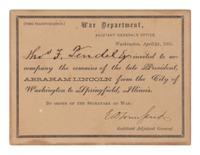 [FREE TRANSPORTATION.]
War Department,
ADJUTANT GENERAL'S OFFICE,
Washington, April 20, 1865.
invited to ac-
company the remains of the late President,
ABRAHAM LINCOLN from the City of
Washington to Springfield, Illinois.
BY ORDER OF THE SECRETARY OF WAR:
Assistant Adjutant General